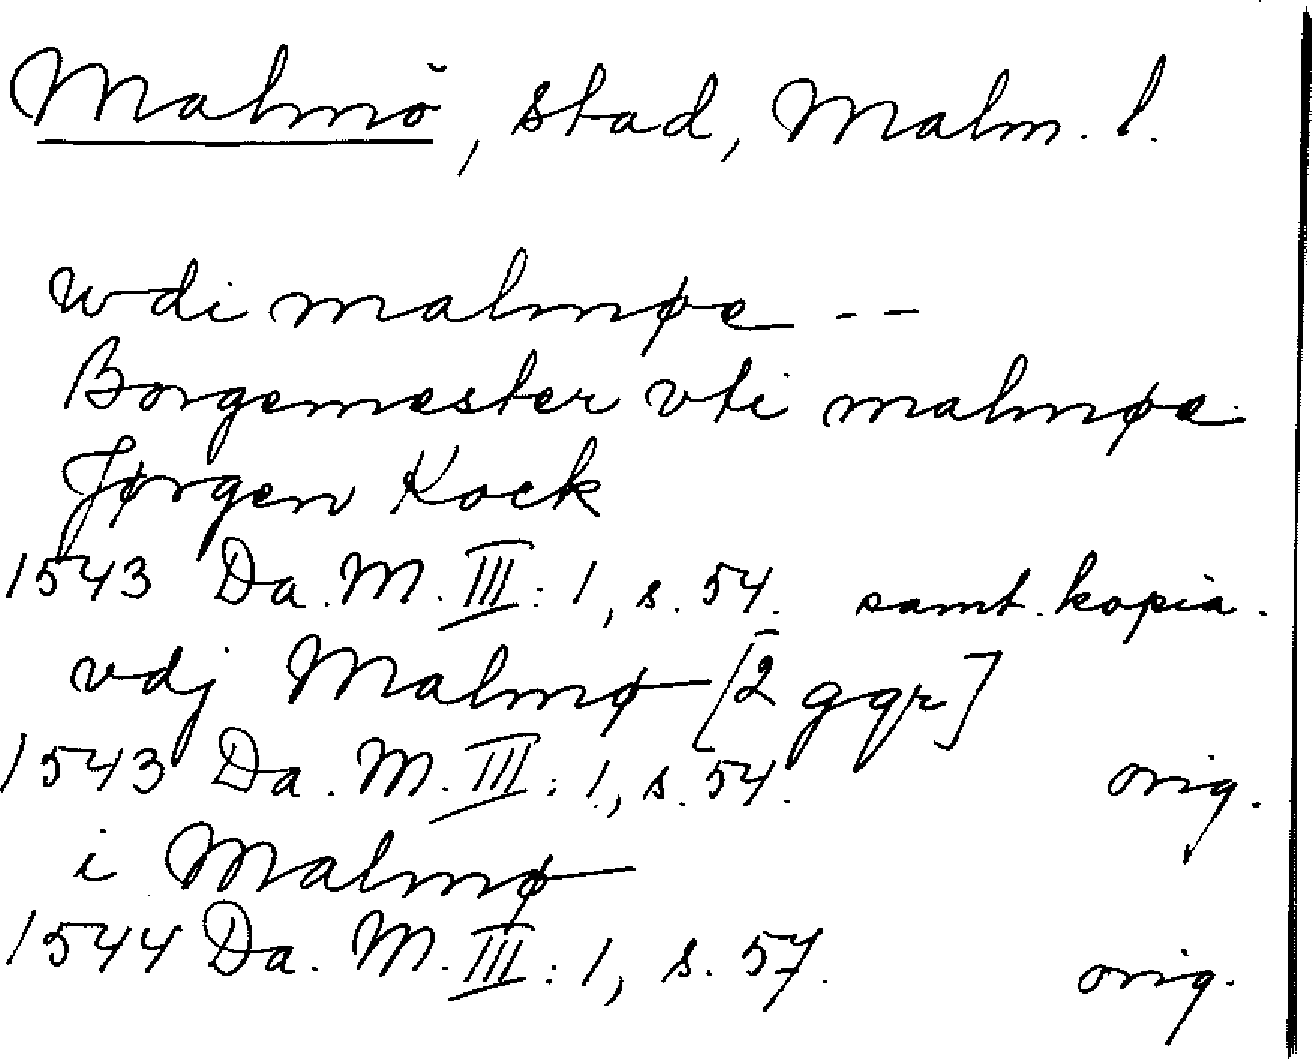 Malmö, stad, Malm. l.
wdi malmøe - -
Borgemester vti malmøe
Jørgen Kock
1543 Da. M. III: 1, s. 54. samt. kopia.
vdj Malmø [2 ggr]
1543 Da. M. III: 1, s. 54. orig.
i Malmø
1544 Da. M. III: 1, s. 57. orig.